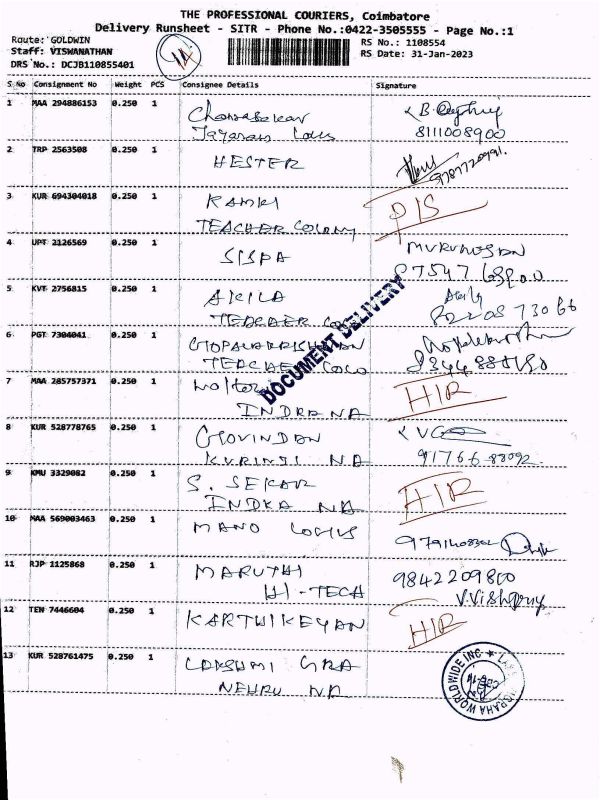 THE PROFESSIONAL COURIERS, Coimbatore
Delivery Runsheet - SITR - Phone No.:0422-3505555 - Page No.:1
Route: GOLDWIN
Staff: VISWANATHAN
DRS No.: DCJB110855401
14
RS No.: 1108554
RS Date: 31-Jan-2023
S No Consignment No Weight PCS Consignee Details Signature
1 MAA 294886153 0.250 1
8111008900
2 TRP 2563508 0.250 1 HESTER
9787720991.
3 KUR 694304018 0.250 1 RAMKI
TEACHER COLONY
P/S
4 UPT 2126569 0.250 1 SISPA
MURUGESAN
5 KVT 2756815 0.250 1 AKILA
TEACHER
6 PGT 7304041 0.250 1 GOPALAKRISHNAN
TEACHER COLO
DOCUMENT DELIVERY
7 MAA 285757371 0.250 1
INDRA NA
HIR
8 KUR 528778765 0.250 1 GOVINDAN
KURINJI NA
91766 88092
9 KMU 3329082 0.250 1 S. SEKAR
INDRA NA
HIR
10 MAA 569003463 0.250 1 MANO LOGUS
11 RJP 1125868 0.250 1 MARUTHI
HI-TECH
9842209800
12 TEN 7446604 0.250 1 KARTHIKEYAN
HIR
13 KUR 528761475 0.250 1 LAKSHMI GRA
NEHRU NA
WORLDWIDE INC